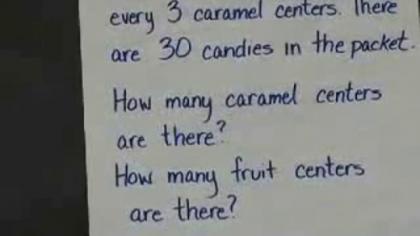 every 3 caramel centers. There
are 30 candies in the packet.
How many caramel centers
are there?
How many fruit centers
are there?